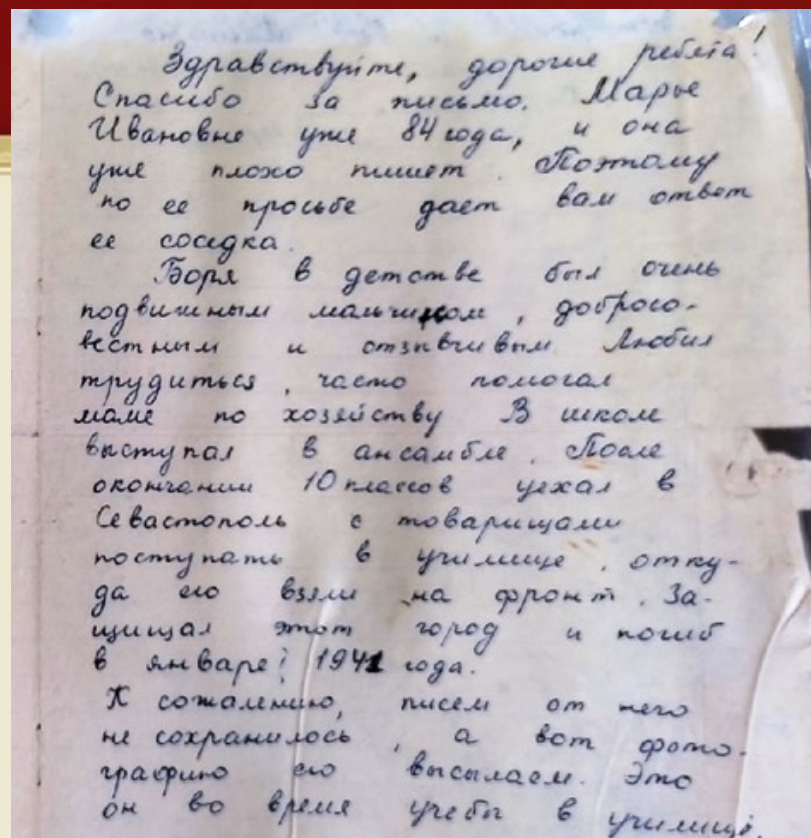 Здравствуйте, дорогие ребята!
Спасибо за письмо. Марье
Ивановне уже 84 года, и она
уже плохо пишет. Поэтому
по ее просьбе дает вам ответ
ее соседка.
Боря в детстве был очень
подвижным мальчиком, добросо-
вестным и отзывчивым. Любил
трудиться, часто помогал
маме по хозяйству. В школе
выступал в ансамбле. После
окончании 10 классов уехал в
Севастополь с товарищами
поступать в училище, отку-
да его взяли на фронт. За-
щищал этот город и погиб
в январе! 1941 года.
К сожалению, писем от него
не сохранилось, а вот фото-
графию его высылаем. Это
он во время учебы в училище.